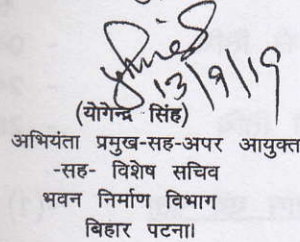 13/9/19
(योगेन्द्र सिंह)
अभियंता प्रमुख-सह-अपर आयुक्त
-सह- विशेष सचिव
भवन निर्माण विभाग
बिहार पटना।
(1)